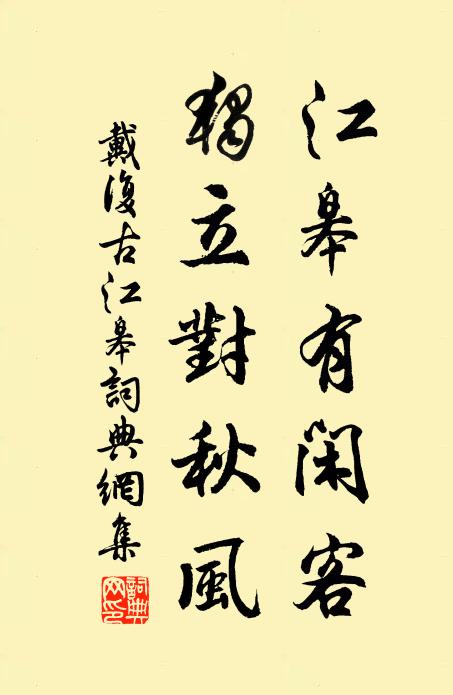 江皋有閑客
獨立對秋風
戴復古江皋詞典網集
詞典網印